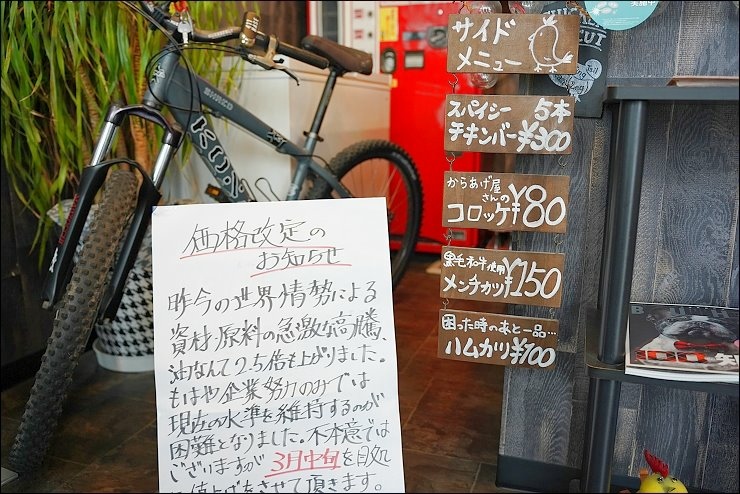 価格改定の
お知らせ
昨今の世界情勢による
資材、原料の急激な高騰、
油なんて2.5倍も上がりました。
もはや企業努力のみでは
現在の水準を維持するのが
困難となりました。不本意では
ございますが3月中旬を目処
値上げをさせて頂きます。
サイド
メニュー
スパイシー 5本
チキンバー ¥300
からあげ屋
さんの
コロッケ ¥80
黒毛和牛使用
メンチカツ ¥150
困った時のあと一品…
ハムカツ ¥100
KONA